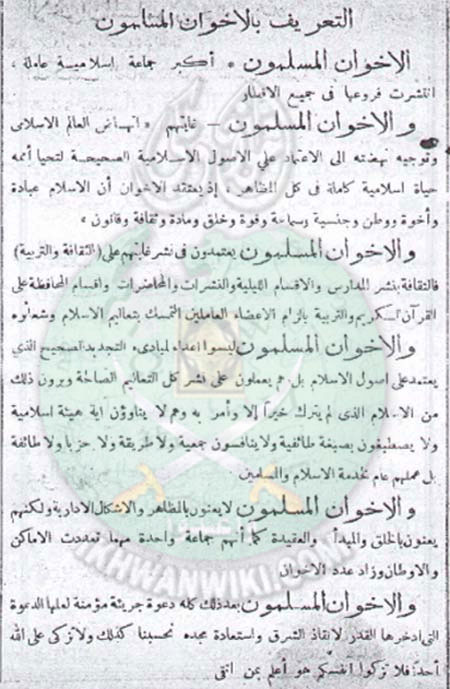 التعريف بالاخوان المسلمون
الاخوان المسلمون « أكبر جماعة اسلامية عاملة ،
انتشرت فروعها فى جميع الاقطار
والاخوان المسلمون — غايتهم « انهاض العالم الاسلامى
وتوجيه نهضته الى الاعتماد على الاصول الاسلامية الصحيحة لتحيا أممه
حياة اسلامية كاملة فى كل المظاهر ، إذ يعتقد الاخوان أن الاسلام عبادة
وأخوة ووطن وجنسية وسماحة وقوة وخلق ومادة وثقافة وقانون »
والاخوان المسلمون يعتمدون فى نشر غايتهم على (الثقافة والتربية)
فالثقافة بنشر المدارس والاقسام الليلية والنشرات والمحاضرات واقسام المحافظة على
القرآن الكريم والتربية بالزام الاعضاء العاملين التمسك بتعاليم الاسلام وشعائره
والاخوان المسلمون ليسوا اعداء لمبادىء التجديد الصحيح الذى
يعتمد على اصول الاسلام بل هم يعملون على نشر كل التعاليم الصالحة ويرون ذلك
من الاسلام الذى لم يترك خيراً إلا وأمر به وهم لا يناوؤن أية هيئة اسلامية
ولا يصطبغون بصبغة طائفية ولا ينافسون جمعية ولا طريقة ولا حزبا ولا طائفة
بل عملهم عام لخدمة الاسلام والمسلمين
والاخوان المسلمون لا يعنون بالمظاهر والاشكال الادارية ولكنهم
يعنون بالخلق والمبدأ والعقيدة كما أنهم جماعة واحدة مهما تعددت الاماكن
والاوطان وزاد عدد الاخوان
والاخوان المسلمون بعد ذلك كله دعوة جريئة مؤمنة لعلها الدعوة
التى ادخرها القدر لانقاذ الشرق واستعادة مجده نحسبنا كذلك ولا نزكى على الله
أحداً فلا تزكوا انفسكم هو أعلم بمن اتقى
IKHWANWIKI.COM